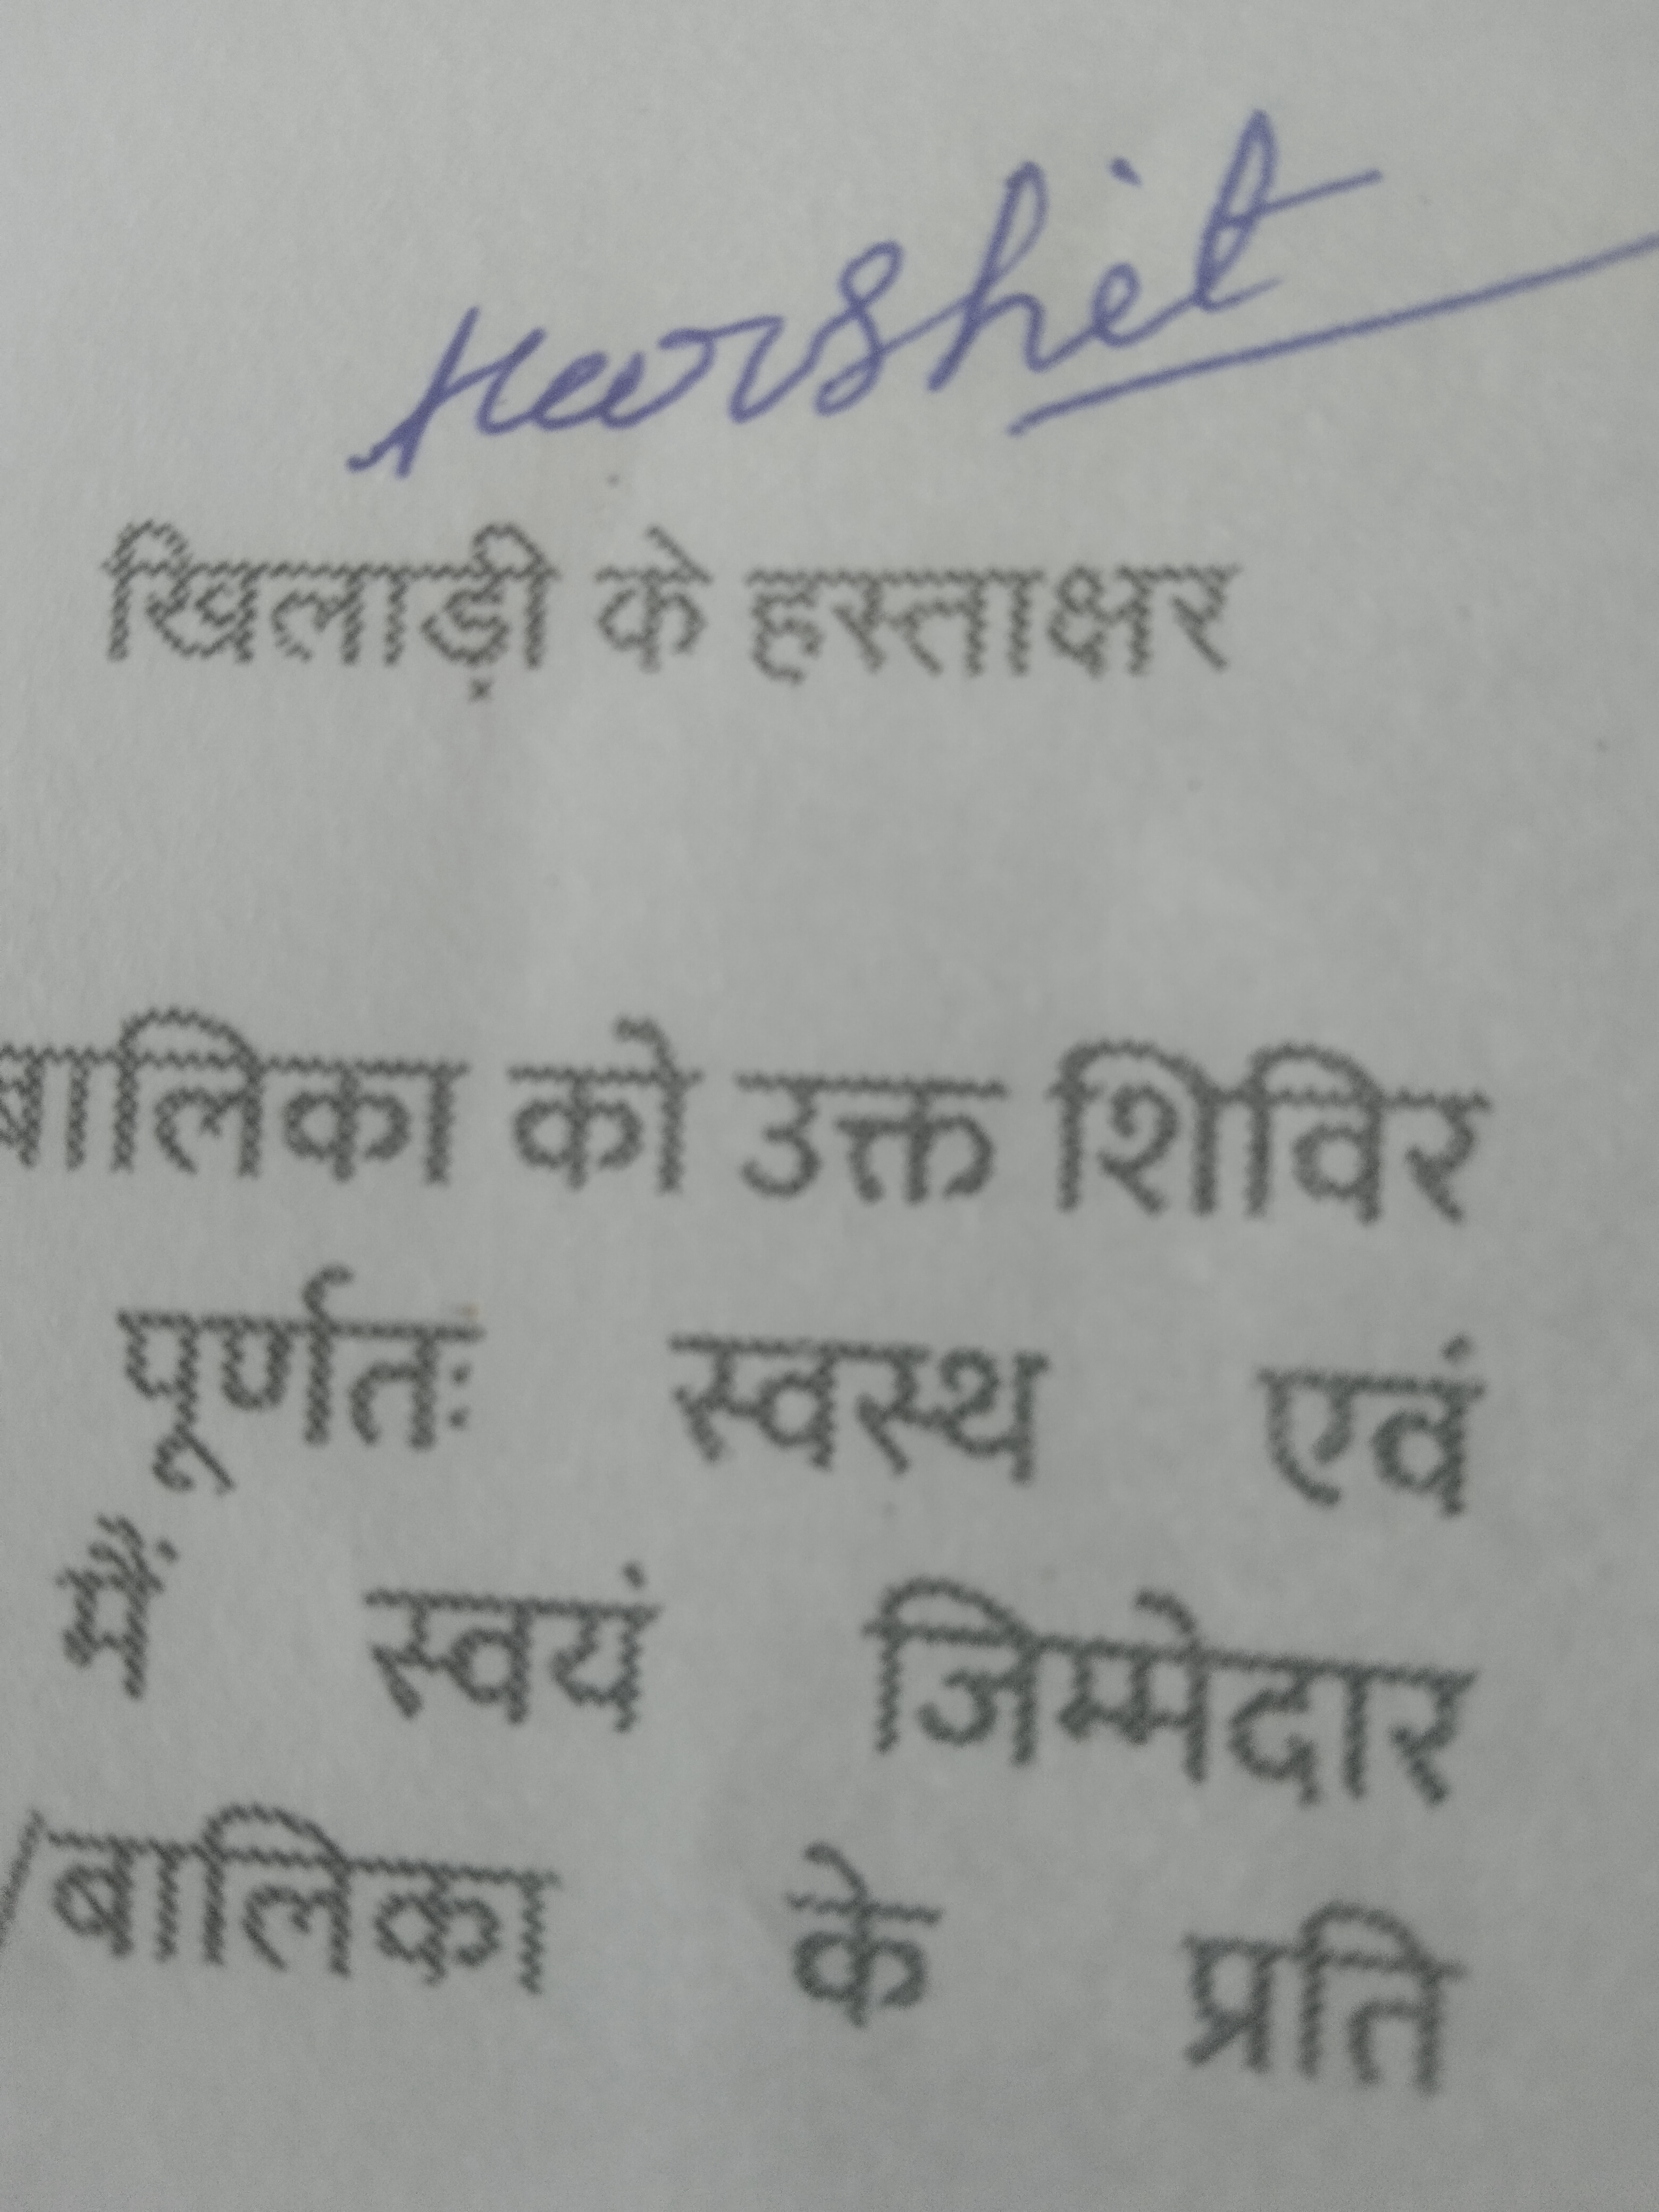 Harshit
खिलाड़ी के हस्ताक्षर
बालिका को उक्त शिविर
पूर्णतः स्वस्थ एवं
में स्वयं जिम्मेदार
/बालिका के प्रति